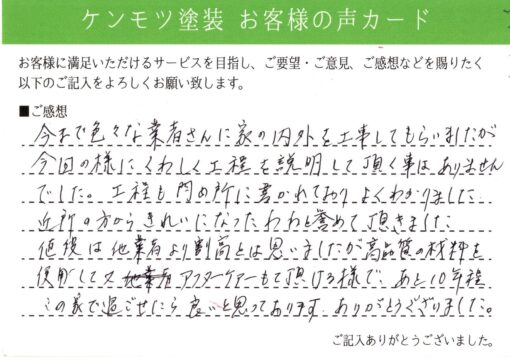 ケンモツ塗装 お客様の声カード
お客様に満足いただけるサービスを目指し、ご要望・ご意見、ご感想などを賜りたく
以下のご記入をよろしくお願い致します。
■ご感想
今まで色々な業者さんに家の内外を工事してもらいましたが
今回の様にくわしく工程を説明して頂く事はありません
でした。工程も門の所に書かれており よくわかりました
近所の方からきれいになったわねと誉めて頂きました
値段は他業者より割高とは思いましたが高品質の材料を
使用して又 アフターケアーもして頂ける様で、あと10年程
この家で過ごせたら良いと思っております。ありがとうございました。
ご記入ありがとうございました。